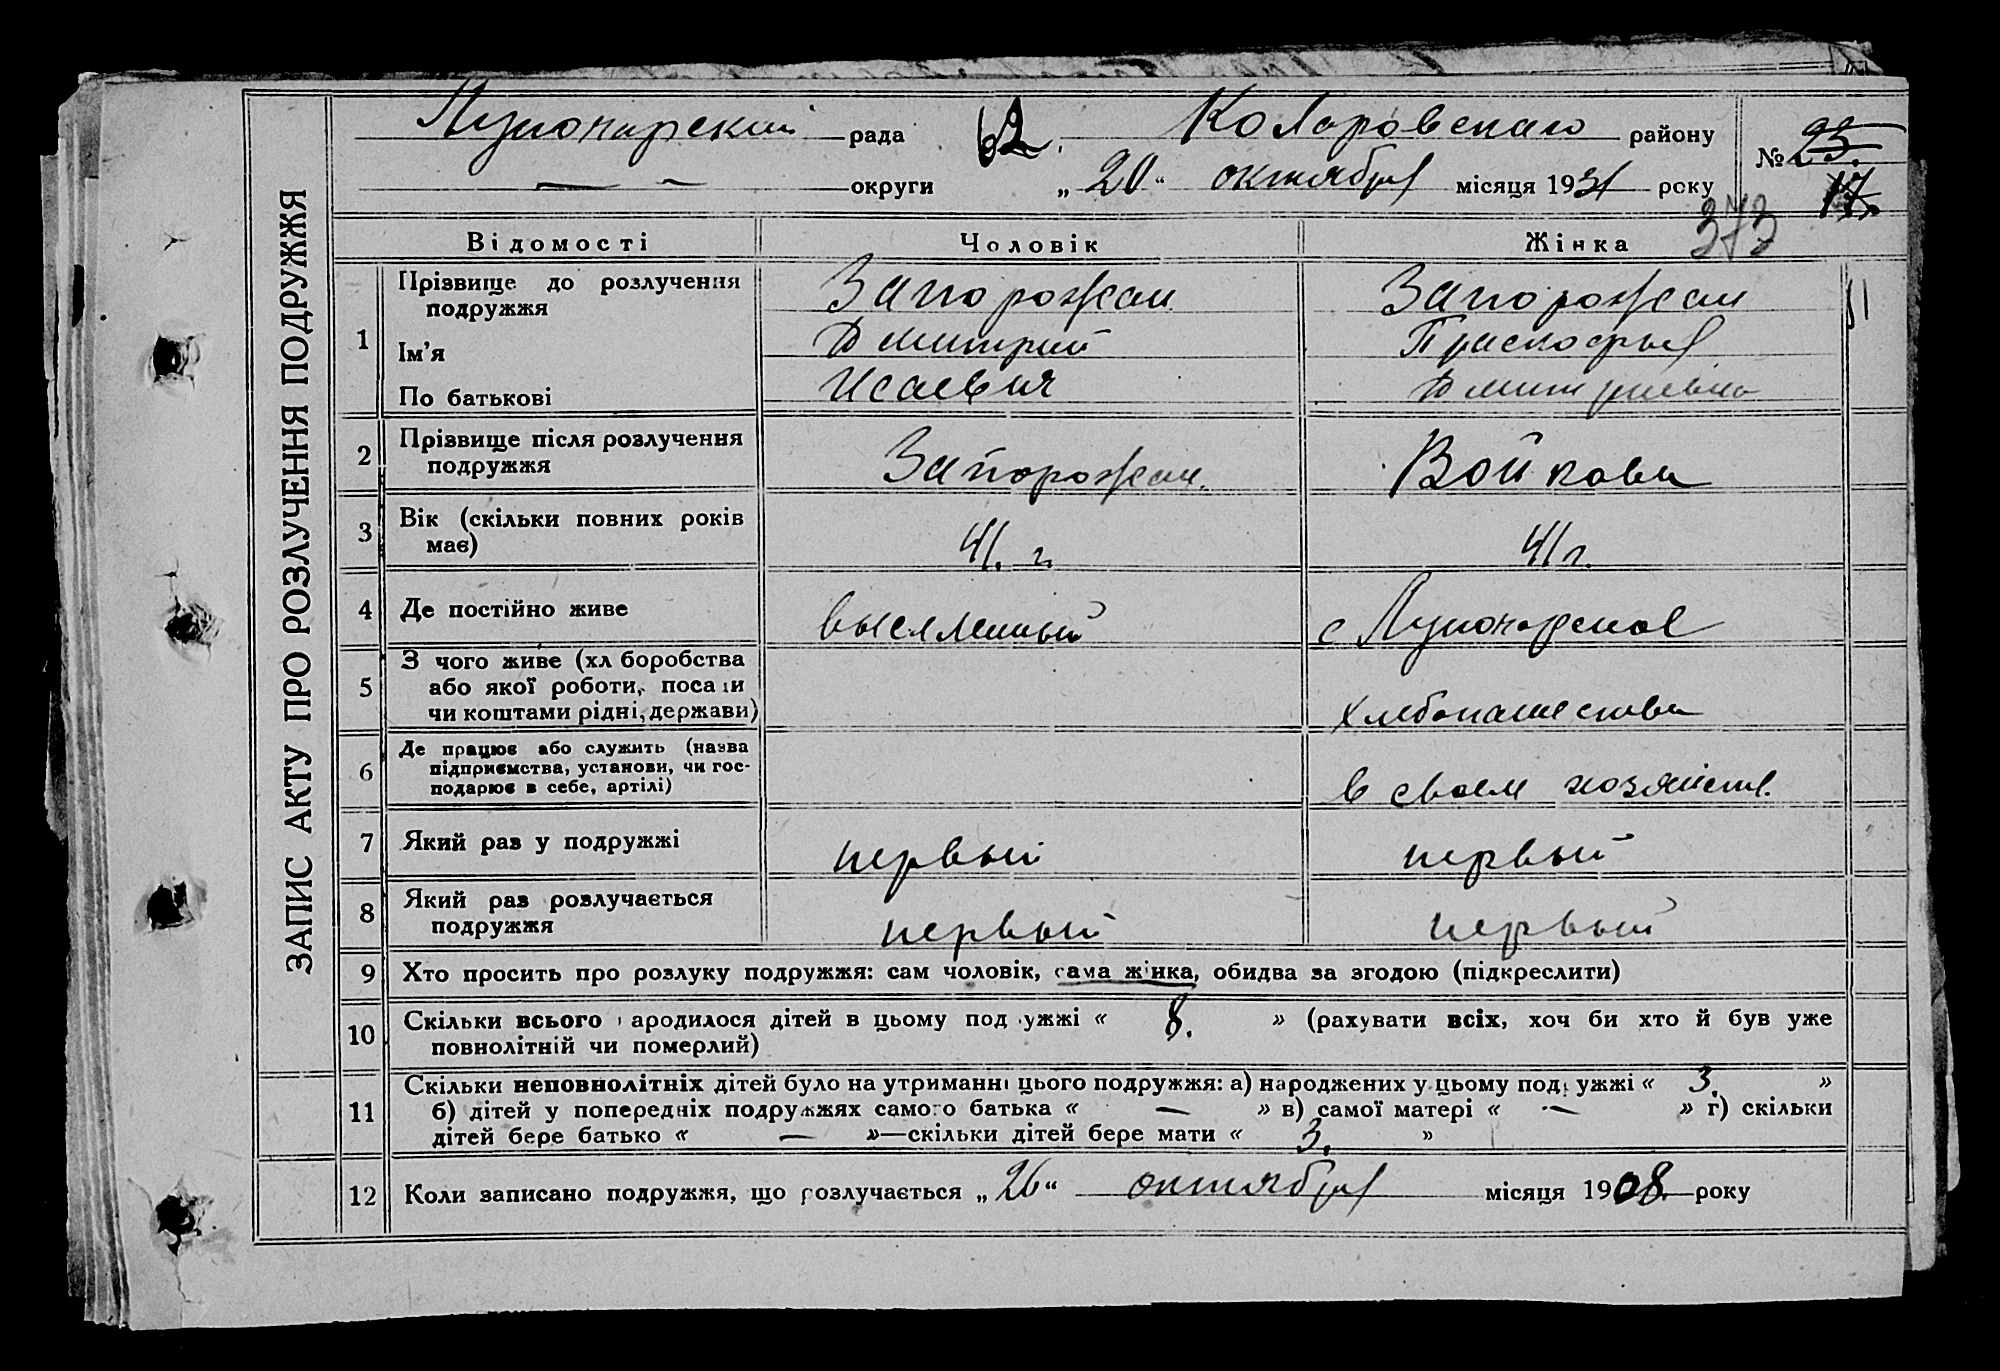 ЗАПИС АКТУ ПРО РОЗЛУЧЕННЯ ПОДРУЖЖЯ
Луначарский рада 62. Коларовскаго району
— — округи „ 20 “ октября місяця 1931 року № 23.
17.
373
Відомості Чоловік Жінка
1 Прізвище до розлучення подружжя Запорожан Запорожан
Ім'я Дмитрий Прасковья
По батькові Исаевич Дмитриевна
2 Прізвище після розлучення подружжя Запорожан. Войкова
3 Вік (скільки повних років має) 41. г. 41 г.
4 Де постійно живе высланный с Луночарское
5 З чого живе (хл боробства
або якої роботи, поса и
чи коштами рідні, держави) хлебопашества
6 Де працює або служить (назва
підприємства, установи, чи гос-
подарює в себе, артілі) в своем хозяйств.
7 Який раз у подружжі первый первый
8 Який раз розлучається
подружжя первый первый
9 Хто просить про розлуку подружжя: сам чоловік, сама жінка, обидва за згодою (підкреслити)
10 Скільки всього ародилося дітей в цьому под ужжі « 8. » (рахувати всіх, хоч би хто й був уже
повнолітній чи померлий)
11 Скільки неповнолітніх дітей було на утриманні цього подружжя: а) народжених у цьому под ужжі « 3. »
б) дітей у попередніх подружжях самого батька « — » в) самої матері « — » г) скільки
дітей бере батько « — »—скільки дітей бере мати « 3. »
12 Коли записано подружжя, що розлучається „ 26 “ октября місяця 1908. року